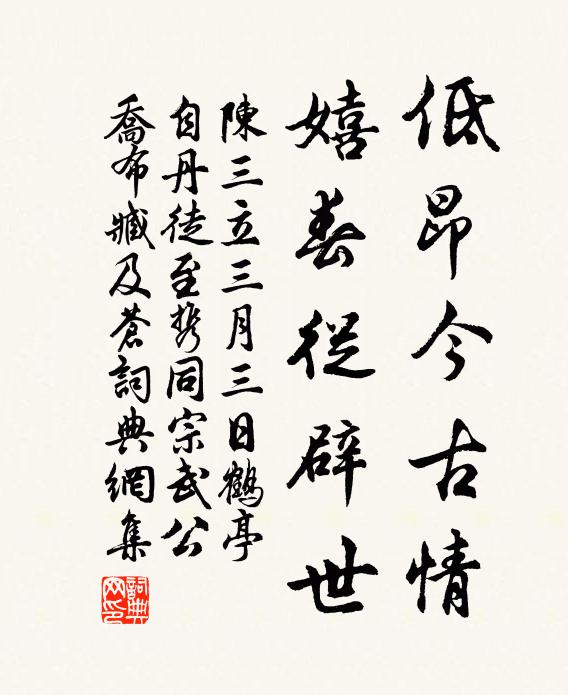 低昂今古情
嬉春從辟世
陳三立三月三日鶴亭
自丹徒至携同宗武公
喬布臧及蒼詞典網集
詞典網印